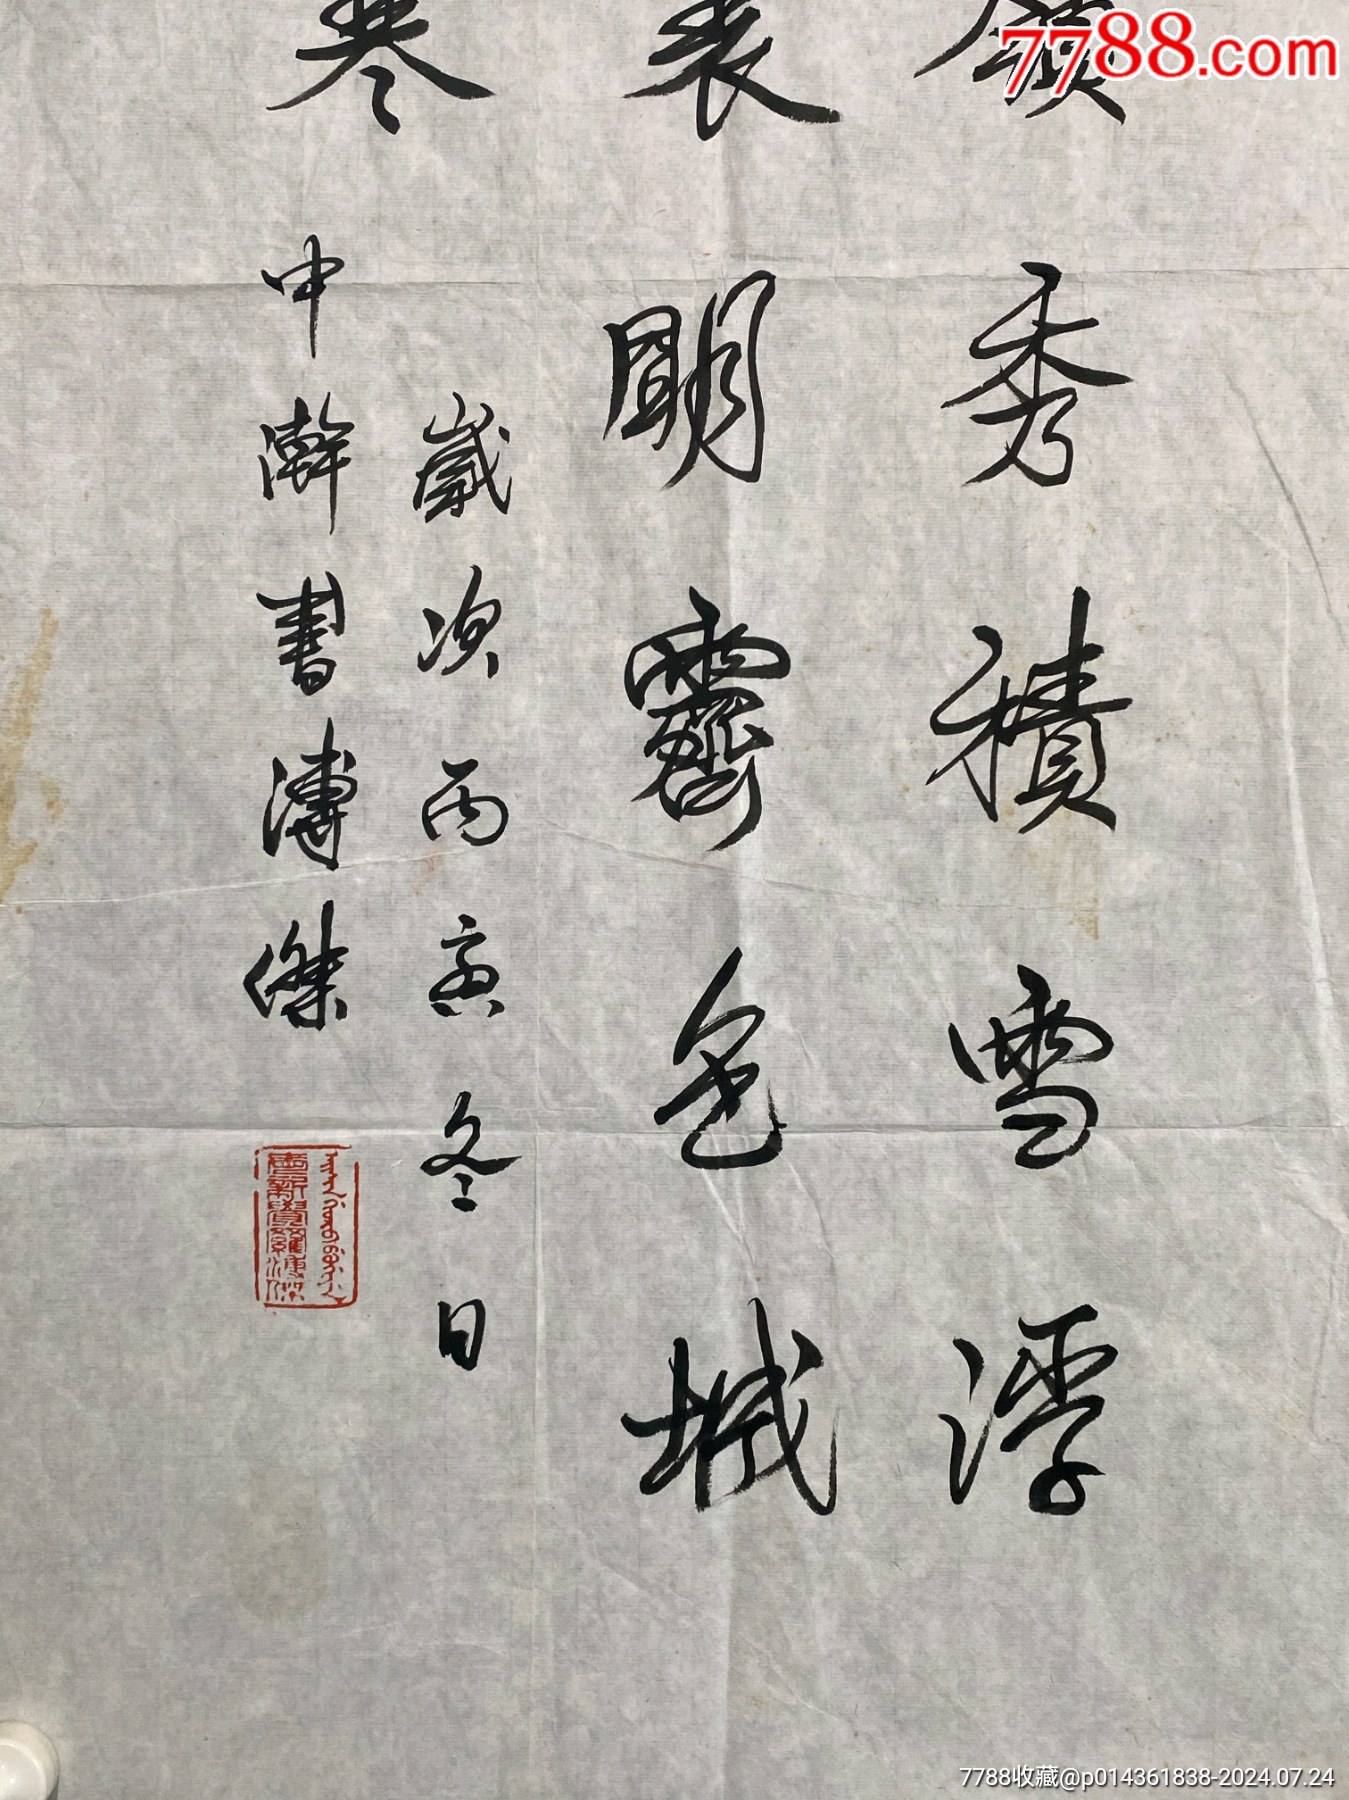 7788.com
嶺秀積雪浮
表明霽色城
寒
歲次丙寅冬日
中澣書溥傑
愛新覺羅溥傑
7788收藏@p014361838-2024.07.24